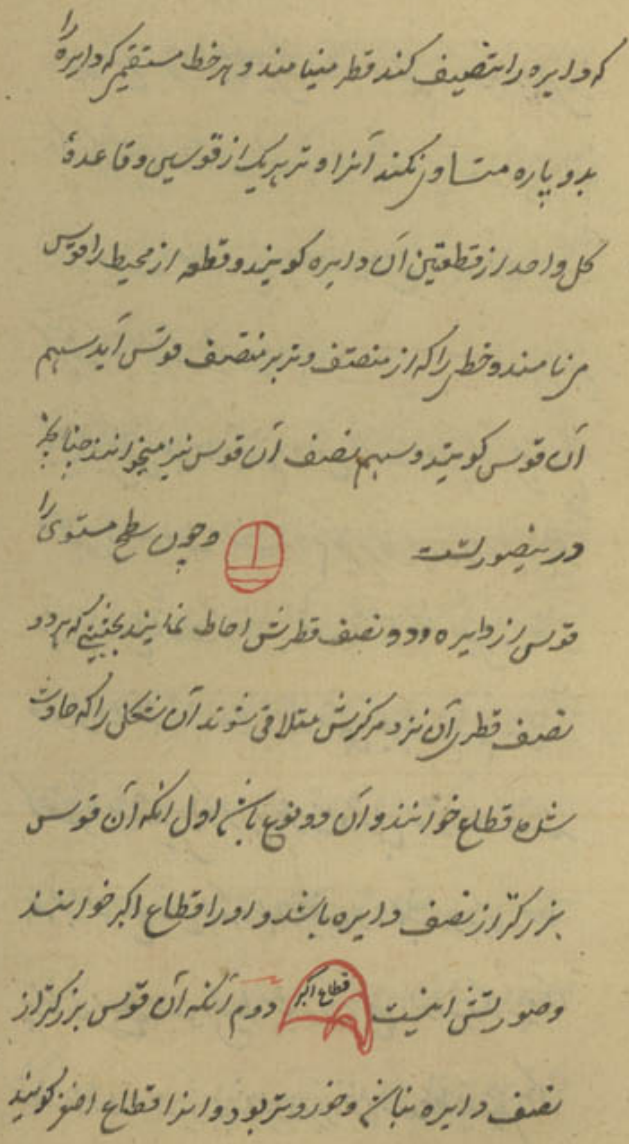 که دایره را تنصیف کند قطر مینامند و هر خط مستقیمی که دایره را
بدو پاره متساوی نکند آنرا وتر هر یک از قوسین و قاعدهٔ
کل واحد از قطعتین آن دایره کویند و قطعه از محیط را قوس
می نامند و خطی را که از منتصف وتر بر منتصف قوس آید سهم
آن قوس کویند و سهم نصف آن قوس نیز میخوانند چنانچه
درینصورتست و چون سطح مستوی را
قوسی از دایره و دو نصف قطرش احاطه نمایند بحیثیتی که هر دو
نصف قطری آن نزد مرکزش متلاقی شوند آن شکل را که حادث
شده قطاع خوانند و آن دو نوع باشد اول آنکه آن قوس
بزرکتر از نصف دایره باشد و او را قطاع اکبر خوانند
و صورتش اینست قطاع اکبر دوم آنکه آن قوس بزرکتر از
نصف دایره نباشد و خوردتر بود و آنرا قطاع اصغر کویند